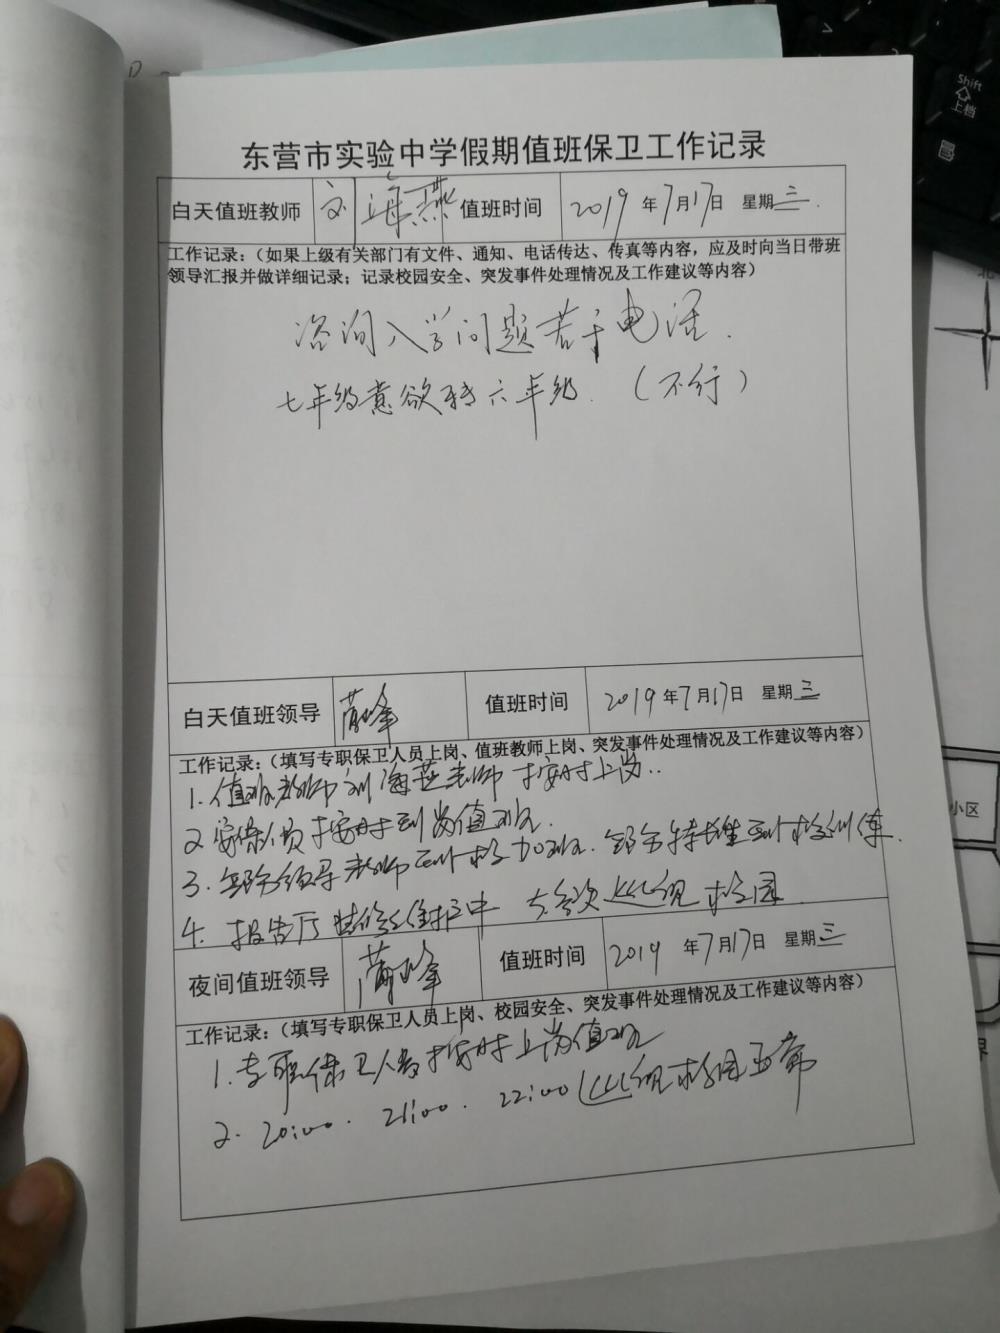 Shift
上档
东营市实验中学假期值班保卫工作记录
白天值班教师 刘海燕 值班时间 2019年7月17日 星期三.
工作记录：（如果上级有关部门有文件、通知、电话传达、传真等内容，应及时向当日带班
领导汇报并做详细记录；记录校园安全、突发事件处理情况及工作建议等内容）
咨询入学问题若干电话.
七年级意欲转六年级.（不行）
白天值班领导 值班时间 2019年7月17日 星期三
工作记录：（填写专职保卫人员上岗、值班教师上岗、突发事件处理情况及工作建议等内容）
1.值班教师刘海燕老师按时上岗..
2 安保人员按时到岗值班.
3.部分领导老师到校加班.部分特长生到校训练.
4.报告厅装修维护中 巡视校园.
夜间值班领导 值班时间 2019年7月17日 星期三
工作记录：（填写专职保卫人员上岗、校园安全、突发事件处理情况及工作建议等内容）
1.专职保卫人员按时上岗值班
2.20:00.21:00.22:00巡视校园正常
小区